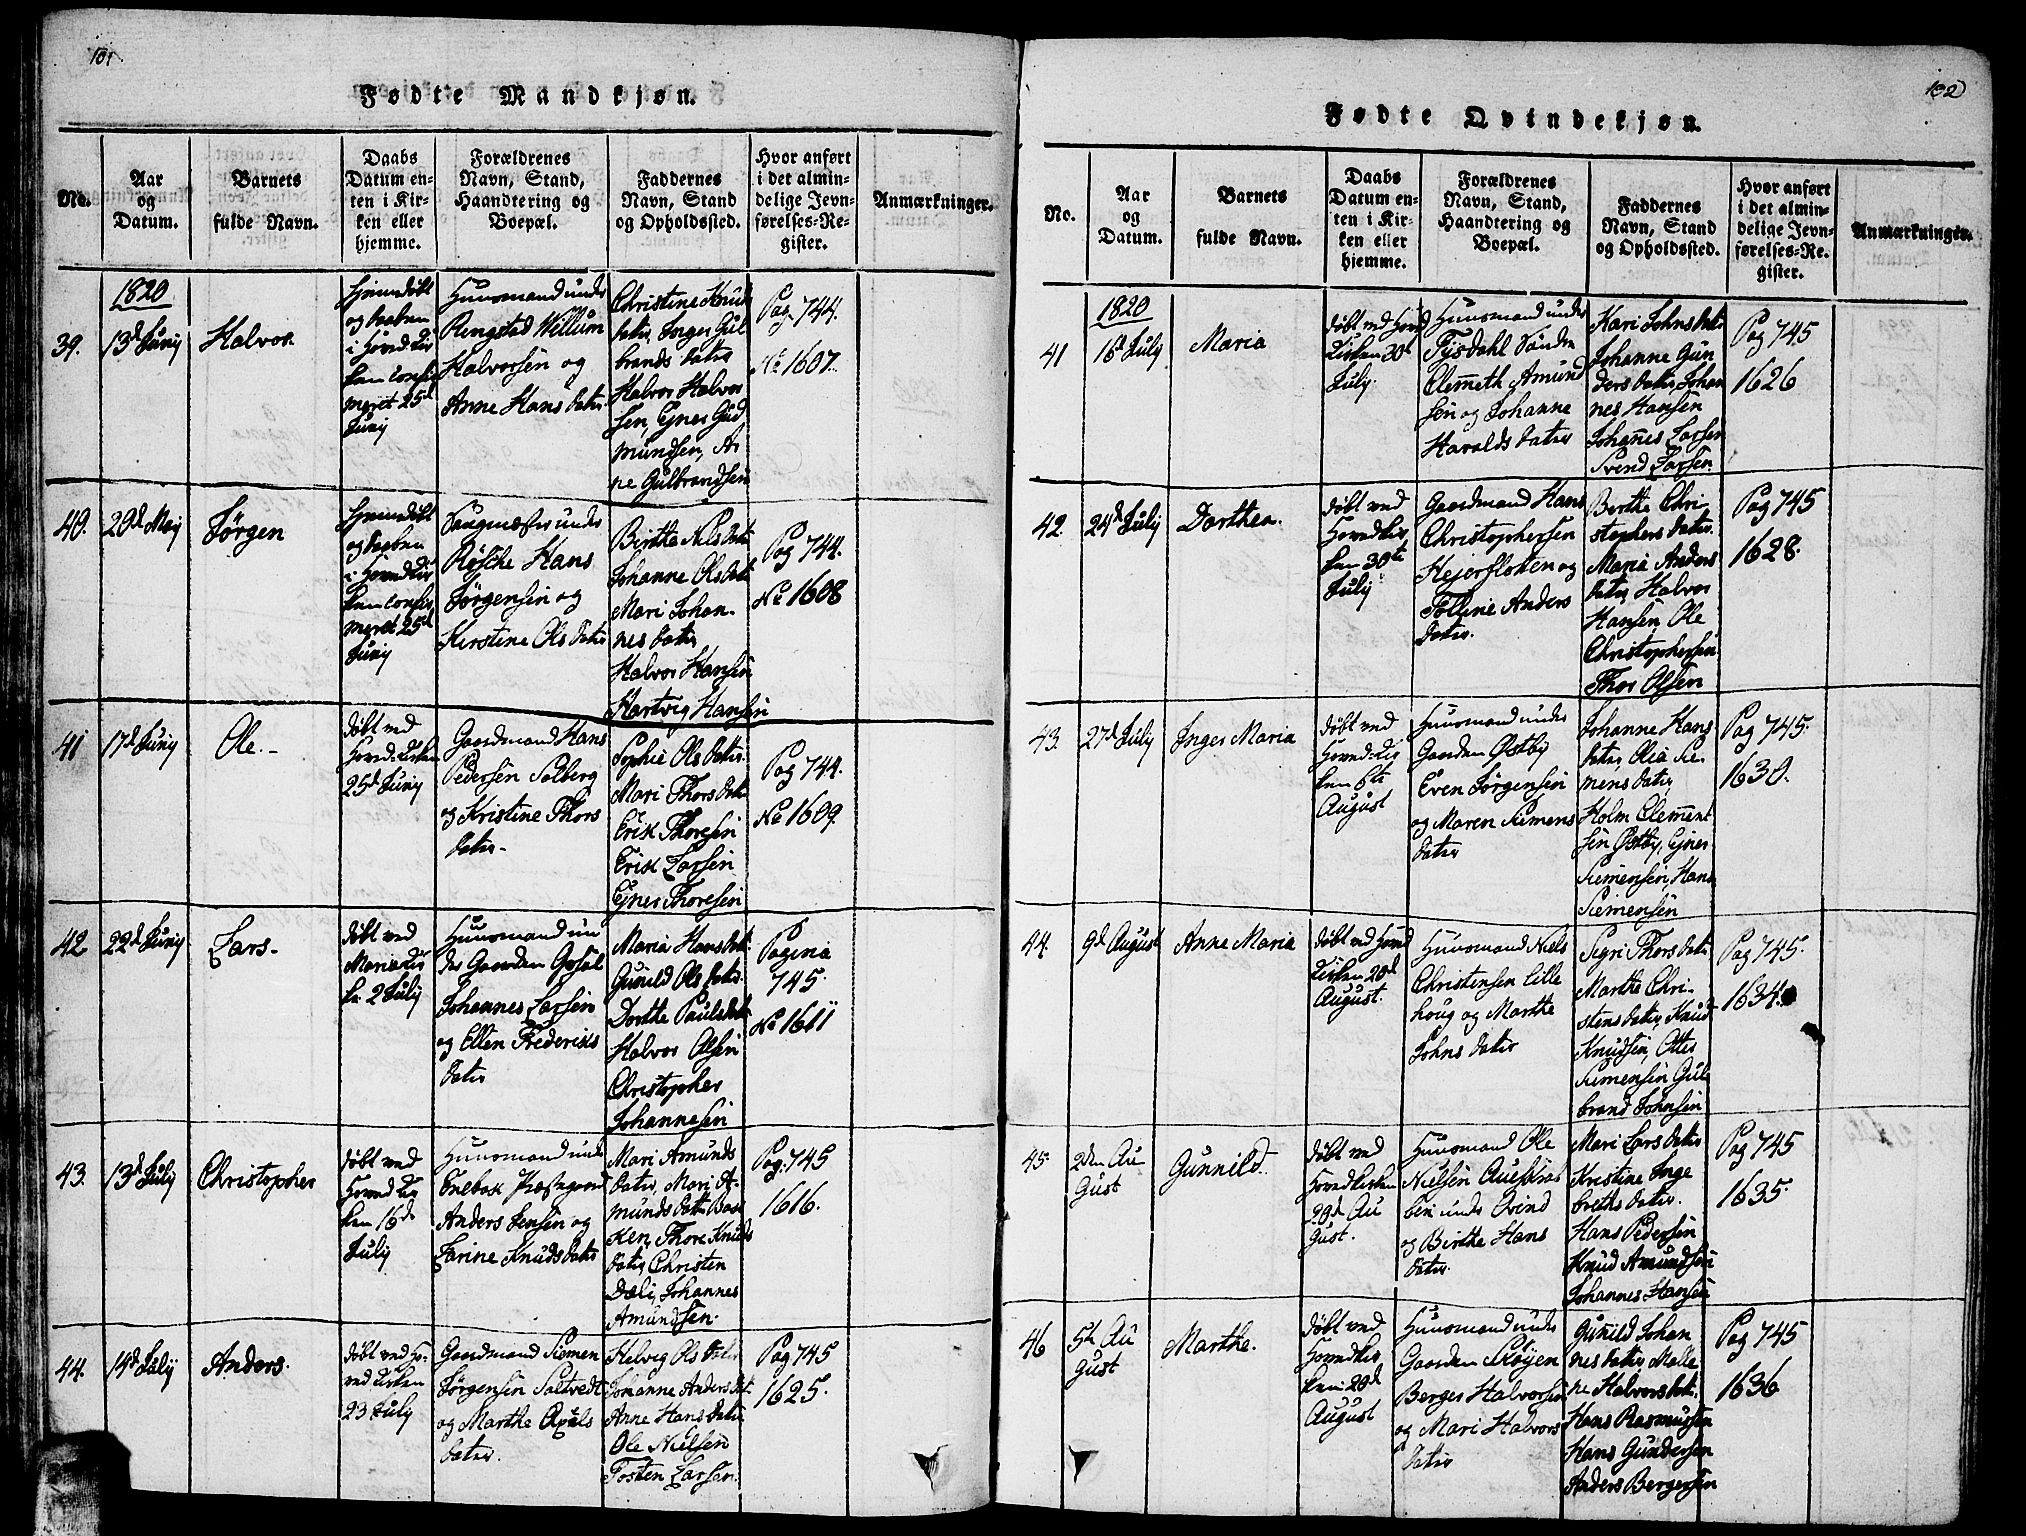 101.
Fødte Mandkjøn.
No.
Aar
og
Datum.
Barnets
fulde Navn.
Daabs
Datum en-
ten i Kir-
ken eller
hjemme.
Forældrenes
Navn, Stand,
Haandtering og
Boepæl.
Faddernes
Navn, Stand
og Opholdssted.
Hvor anført
i det almin-
delige Jevn-
førelses-Re-
gister.
Anmærkninger.
1820
39.
13d Junij
Halvor
Hjemmedøbt
og
i Hoved Kir
ken confir
meret 25d
Junij
Huusmand under
Ringstad Willum
Halvorsen og
Anne Hans datter
Christine Knuds
datter, Inger Gul
brands datter
Halvor Halvor
sen, Ejner Gud
mundsen, Ar
ne Gulbrandsen
Pag 744.
No 1607.
40.
20d Maij
Jørgen
Hjemmedøbt
og
i Hoved Kir
ken confir
meret 25d
Junij
Saugmester under
Røsche Hans
Jørgensen og
Kirstine Ols datter
Birthe Nils datter
Johanne Ols datter
Mari Johan-
nes datter
Halvor Hansen
Hartvig Hansen
Pag 744.
No 1608
41
17d Junij
Ole.-
døbt ved
Hoved Kirken
25d Junij
Gaardmand Hans
Pedersen Solberg
og Kristine Thors
datter-
Sophie Ols datter
Mari Thors datter
Erik Thoresen
Erik Larsen
Ejner Thoresen
Pag 744.
No 1609.
42.
22d Junij
Lars-
døbt ved
Maria Kir
ke 2 Julij
Huusmand un
der Gaarden
Johannes Larsen
og Ellen Frederiks
datter
Maria Hans datter
Gunild Ols datter
Dorthe Pauls datter
Halvor Olsen
Christopher
Johannesen
Pagina
745.
No 1611
43.
13d Julij
Christopher
døbt ved
Hoved Kir
ken 16d
Julij
Huusmand under
Enebak Præstgaard
Anders Jensen og
Larine Knuds datter
Mari Amunds
datter, Mari A-
munds datter Bak
ken, Thore Knuds
datter, Christen
Dæli, Johannes
Amundsen.
Pag. 745
1616.
44.
14d Julij
Anders.
døbt ved Ho-
ved Kirken
23 Julij
Gaardmand Siemen
Jørgensen Saltvedt
og Marthe Axels
datter.
Helvig Ols datter
Johanne Anders datter
Anne Hans datter
Ole Nielsen
Tosten Larsen.
Pag 745
1625.
102
Fødte Qvindekjøn.
No.
Aar
og
Datum.
Barnets
fulde Navn.
Daabs
Datum en-
ten i Kir-
ken eller
hjemme.
Forældrenes
Navn, Stand,
Haandtering og
Boepæl.
Faddernes
Navn, Stand
og Opholdssted.
Hvor anført
i det almin-
delige Jevn-
førelses-Re-
gister.
Anmærkninger.
1820
41
16d Julij
Maria
døbt ved Hoved
Kirken 30d
Julij.
Huusmand under
Tysdahl Søndre
Clemeth Amund
sen og Johanne
Haralds datter
Kari Johns datter
Johanne Gun
ders datter, Johan
nes Hansen
Johannes Larsen
Svend Larsen
Pag 745
1626
42.
24d Julij
Dorthea.
døbt ved
Hovedkir
ken 30te
Julij
Gaardmand Hans
Christophersen
Hejersloten og
Tolline Anders
datter.
Berthe Chri-
stophers datter.
Maria Anders
datter, Halvor
Hansen Ole
Christophersen
Thor Olsen
Pag 745
1628.
43.
27d Julij
Inger Maria
døbt ved
Hoved Kir
ken 6te
August
Huusmand under
Gaarden Østby
Even Jørgensen
og Maren Siemens
datter
Johanne Hans
datter, Olia Sie-
mens datter
Holm Clement
sen Østby, Ejner
Siemensen, Hans
Siemensen
Pag 745.
1630.
44.
9d August
Anne Maria
døbt ved Hoved
Kirken 20d
August.
Huusmand Niels
Christensen Lille
houg og Marthe
Johns datter
Sigri Thors datter
Marthe Chri-
stens datter, Knud
Knudsen, Otter
Siemensen Gul
brand Johnsen
Pag 745.
1634.
45.
2den Au
gust
Gunnild.
døbt ved
Hovedkirken
20d Au
gust.
Huusmand Ole
Nielsen
under Qvind
og Birthe Hans
datter.
Mari Lars datter
Kristine Inge
breths datter.
Hans Pedersen
Knud Amundsen
Johannes Hansen
Pag 745
1635.
46
5te Au
gust
Marthe.
døbt ved
Hovedkir
ken 20d
August
Huusmand under
Gaarden Skøyen
Berger Halvorsen
og Mari Halvors
datter
Gunild Johan
nes datter, Malle
ne Halvors datter.
Hans Rasmusen
Hans Gundersen
Anders Bergersen
Pag 745
1636